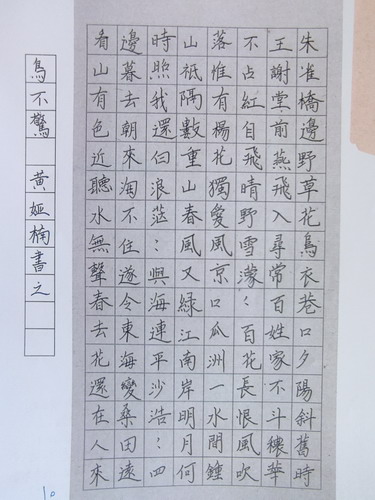 朱雀橋邊野草花烏衣巷口夕陽斜舊時
王謝堂前燕飛入尋常百姓家不斗穠華
不占紅自飛晴野雪濛：百花長恨風吹
落惟有楊花獨愛風京口瓜洲一水間鍾
山祇隔數重山春風又綠江南岸明月何
時照我還白浪茫：與海連平沙浩：四
邊暮去朝來淘不住遂令東海變桑田遠
看山有色近聽水無聲春去花還在人來
鳥不驚 黃婭楠書之
10